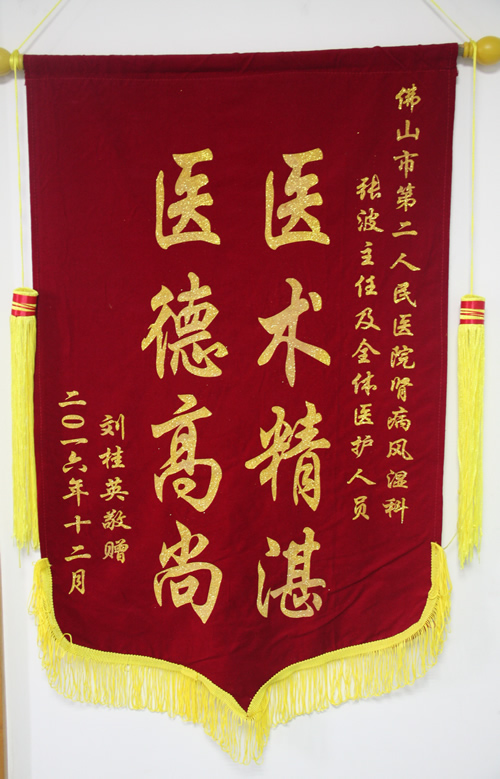 佛山市第二人民医院肾病风湿科
张波主任及全体医护人员
医术精湛
医德高尚
刘桂英敬赠
二〇一六年十二月